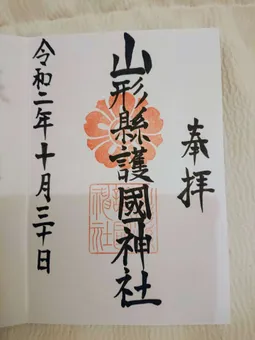 奉拝
山形縣護國神社
令和二年十月三十日